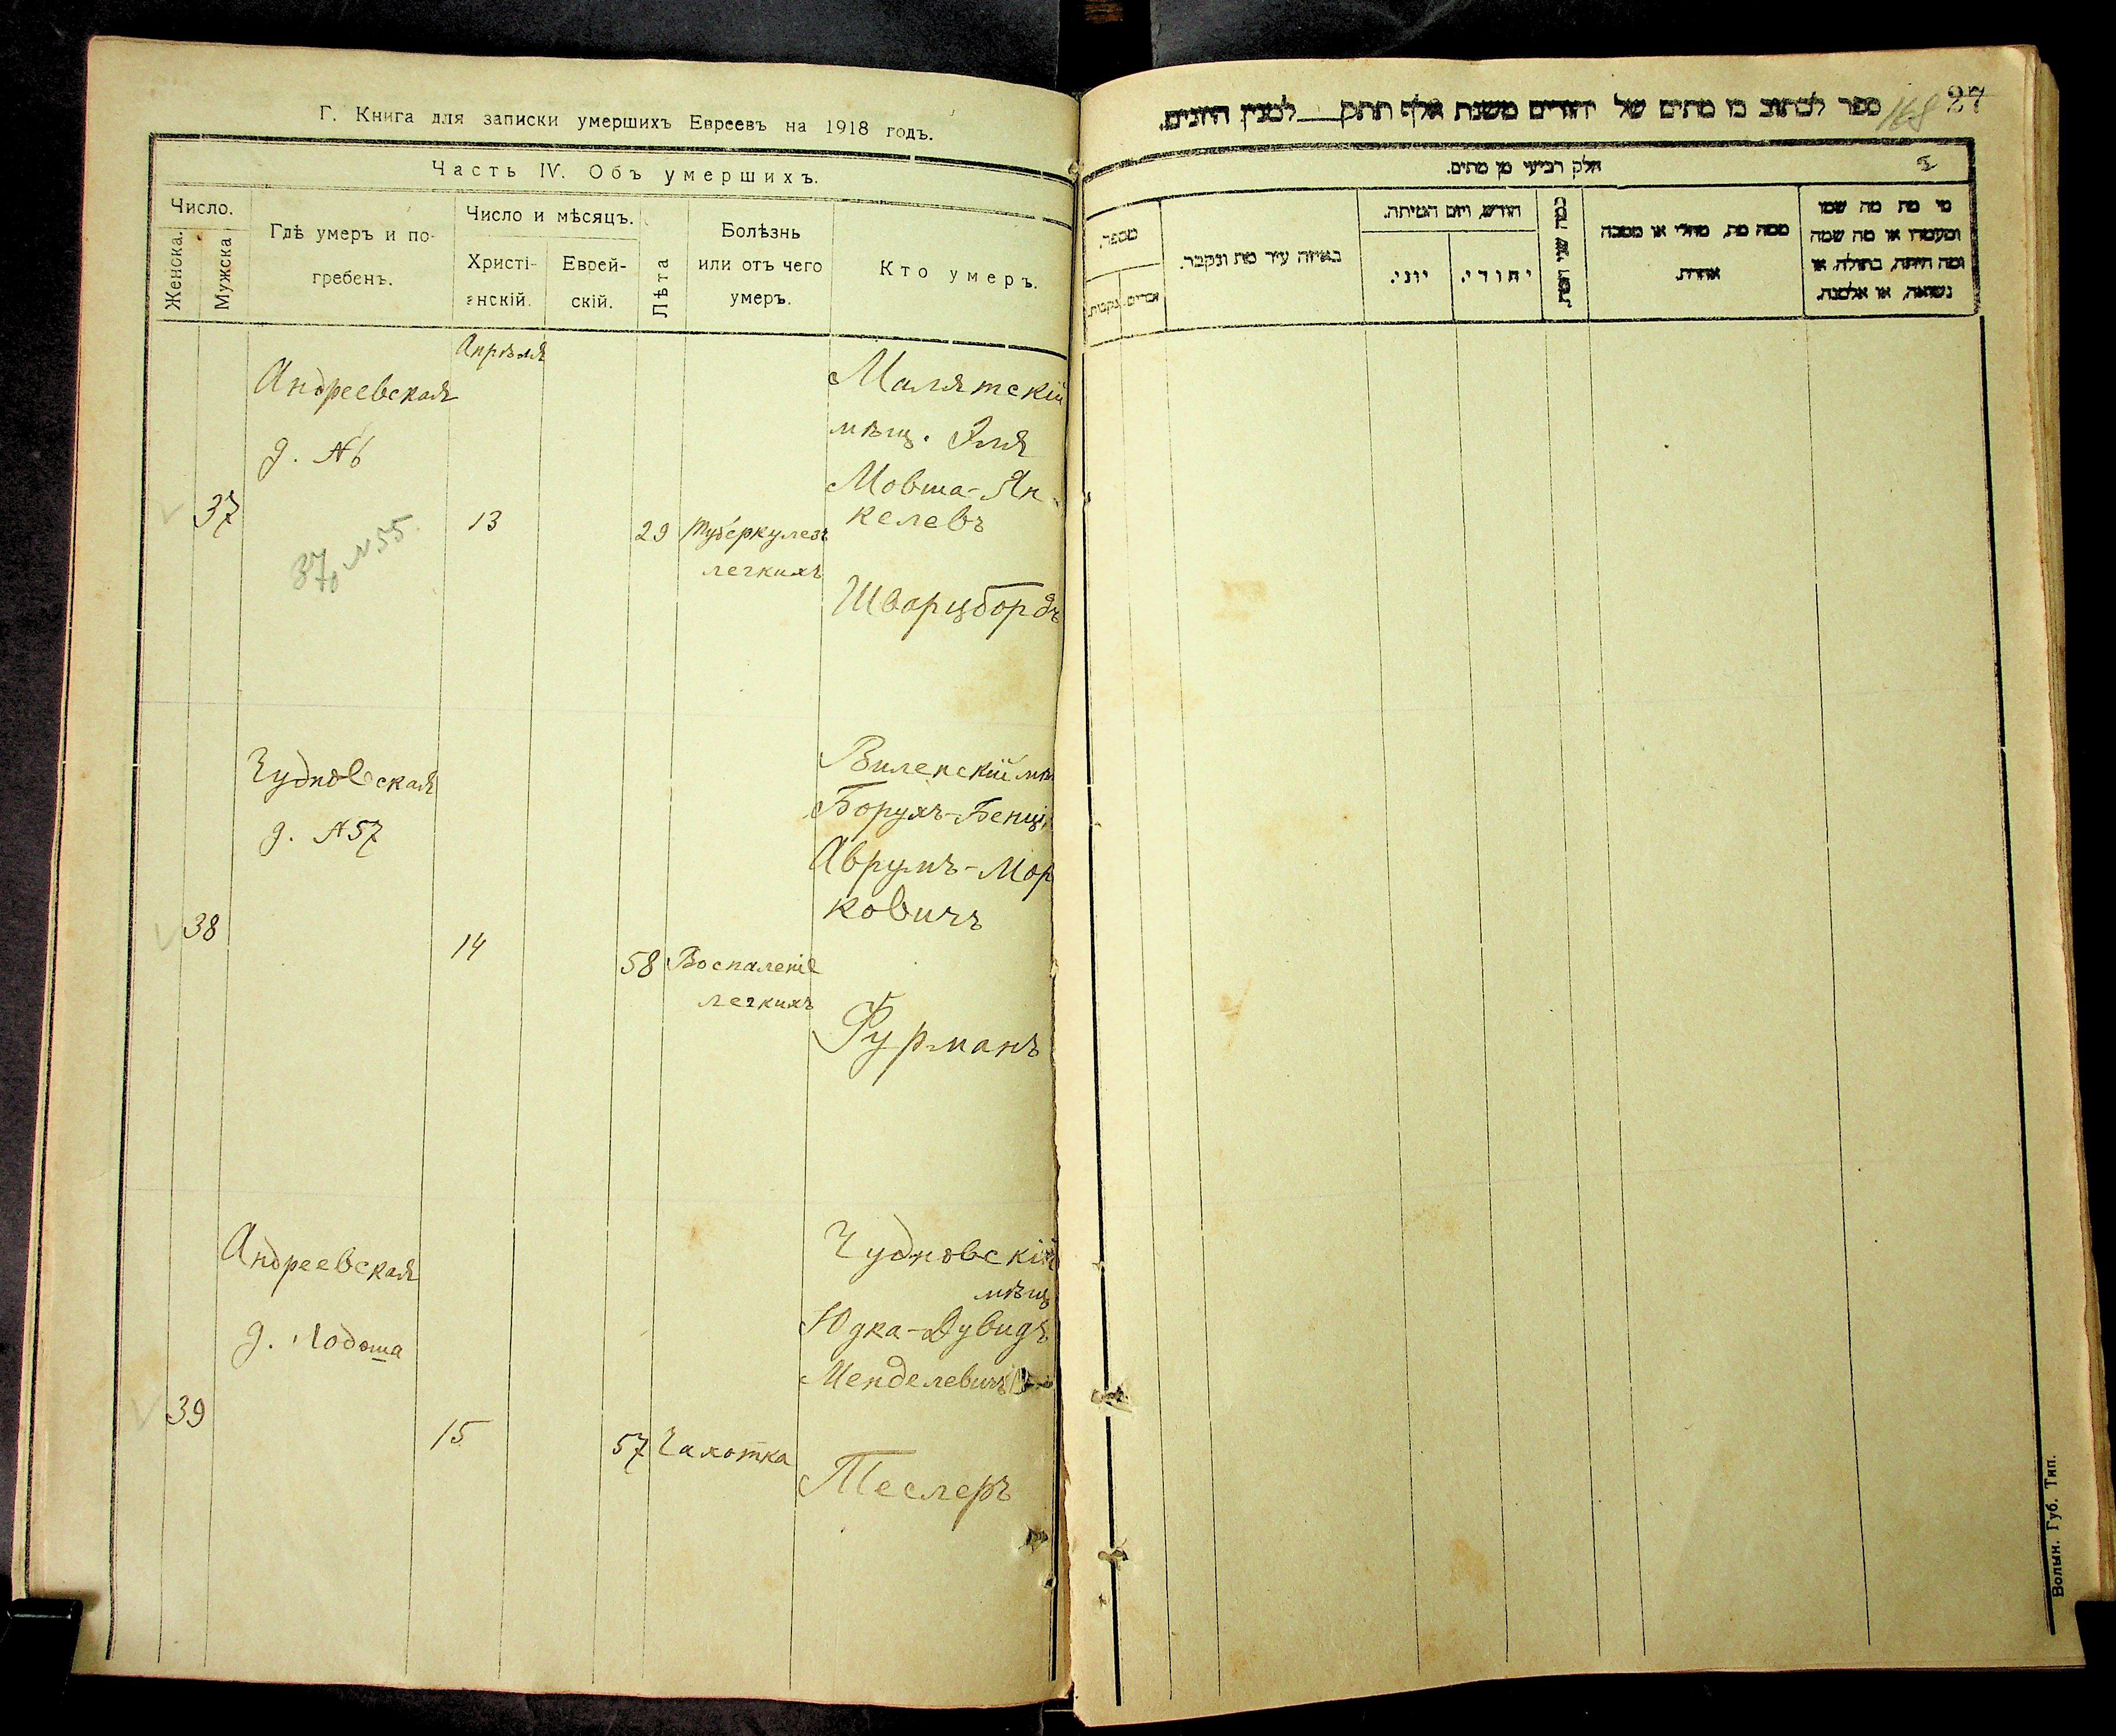 Г. Книга для записки умершихъ Евреевъ на 1918 годъ.
Часть IV. Объ умершихъ.
Число.
Женска.
Мужска
Гдѣ умеръ и по-
гребенъ.
Число и мѣсяцъ.
Христі-
анскій.
Еврей-
скій.
Лѣта
Болѣзнь
или отъ чего
умеръ.
Кто умеръ.
Апрѣля
Андреевская
д. №6
37
37
№55
13
29
Туберкулезъ
легкихъ
Малятскій
мѣщ. Эля
Мовша-Ян-
келевъ
Шварцбордъ
Чудновская
д. №57
38
14
58
Воспаленіе
легкихъ
Виленскій мѣ
Борухъ-Бенці
Аврумъ-Мор
ковичъ
Фурманъ
Андреевская
д.
39
15
57
Чахотка
Чудновскій
мѣщ
Юдка-Дувидъ
Менделевичъ
Теслеръ
27
168
ספר לכתוב בו מתים של יהודים משנת אלף תתק למנין היונים.
חלק רביעי מן מתים.
מספר.
זכרים.
נקבות.
באיזה עיר מת ונקבר.
חודש, ויום המיתה.
יוני.
יהודי.
כמה שני המת.
ממה מת, מחלי או מסבה
אחרת.
מי מת מה שמו
ומעמדו או מה שמה
ומה היתה, בתולה, או
נשואה, או אלמנה.
Волын. Губ. Тип.